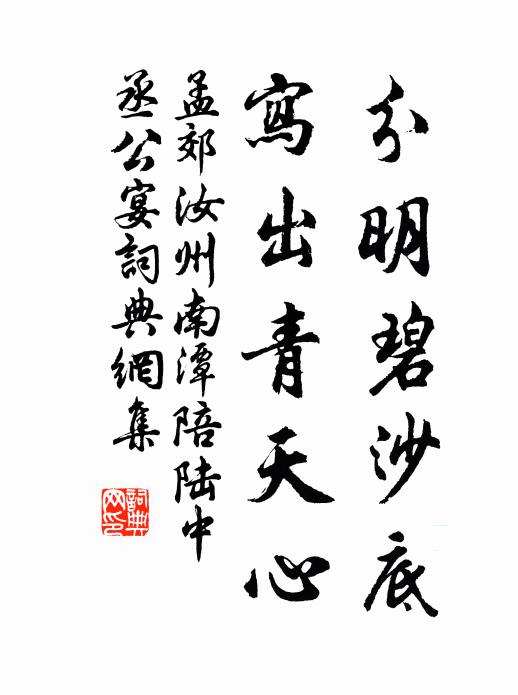 分明碧沙底
寫出青天心
孟郊汝州南潭陪陸中
丞公宴詞典網集
詞典
网印